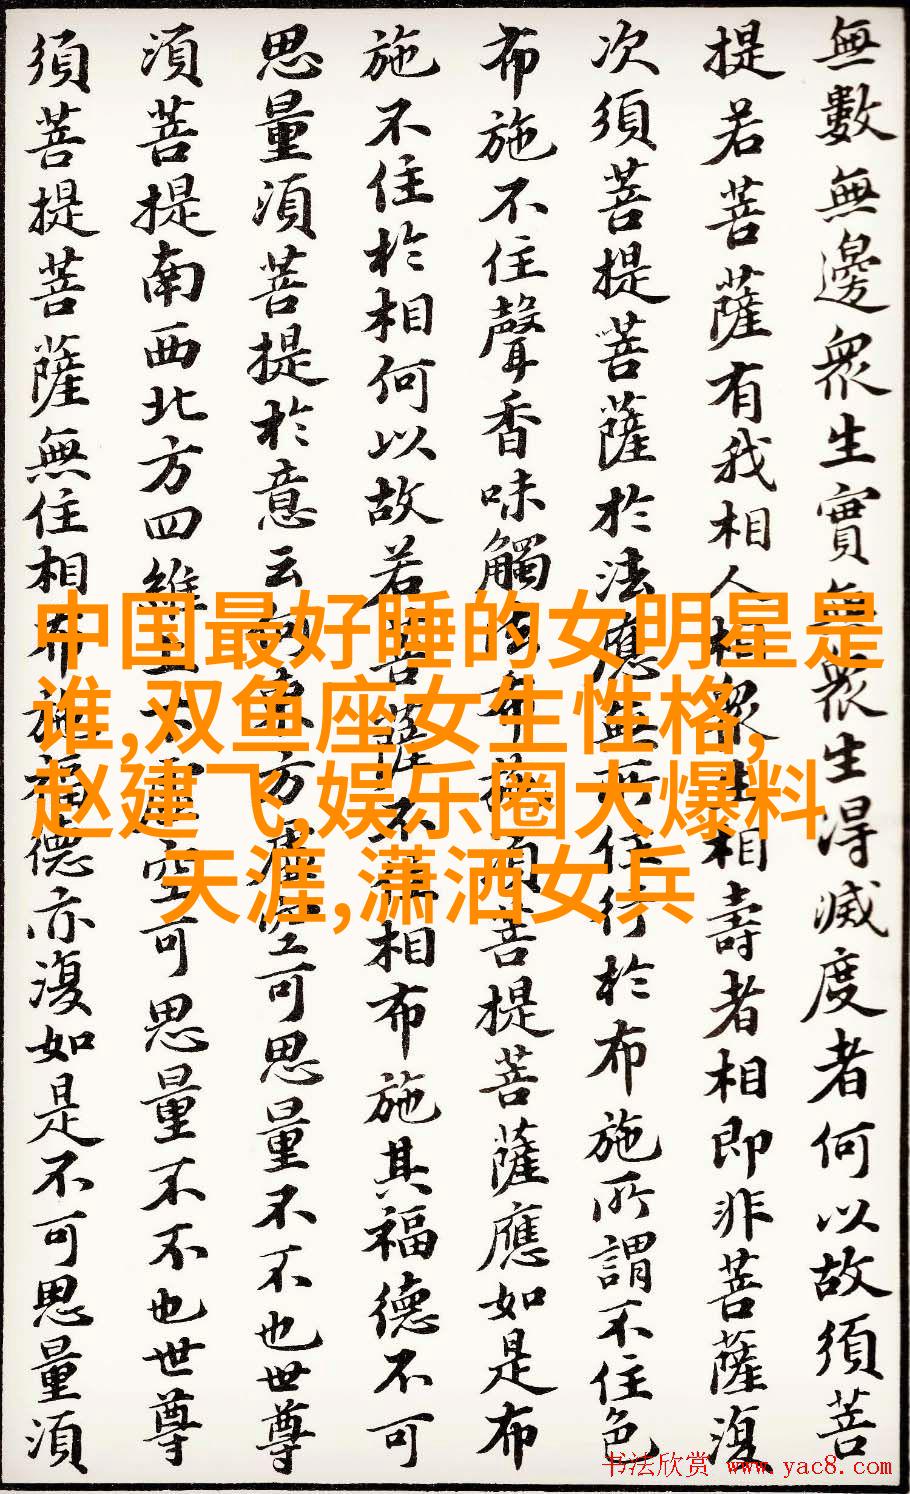 無數無邊衆生實無衆生得滅度者何以故須菩
提若菩薩有我相人相衆生相壽者相即非菩薩復
次須菩提菩薩於法應無所住行於布施所謂不住色
布施不住聲香味觸法布施須菩提菩薩應如是布
施不住於相何以故若菩薩不住相布施其福德不可
思量須菩提於意云何東方虛空可思量不不也世尊
須菩提南西北方四維上下虛空可思量不不也世尊
須菩提菩薩無住相布施福德亦復如是不可思量須
中国最好睡的女明星是
谁,双鱼座女生性格,
赵建飞,娱乐圈大爆料
天涯,潇洒女兵
书法欣赏 www.yac8.com